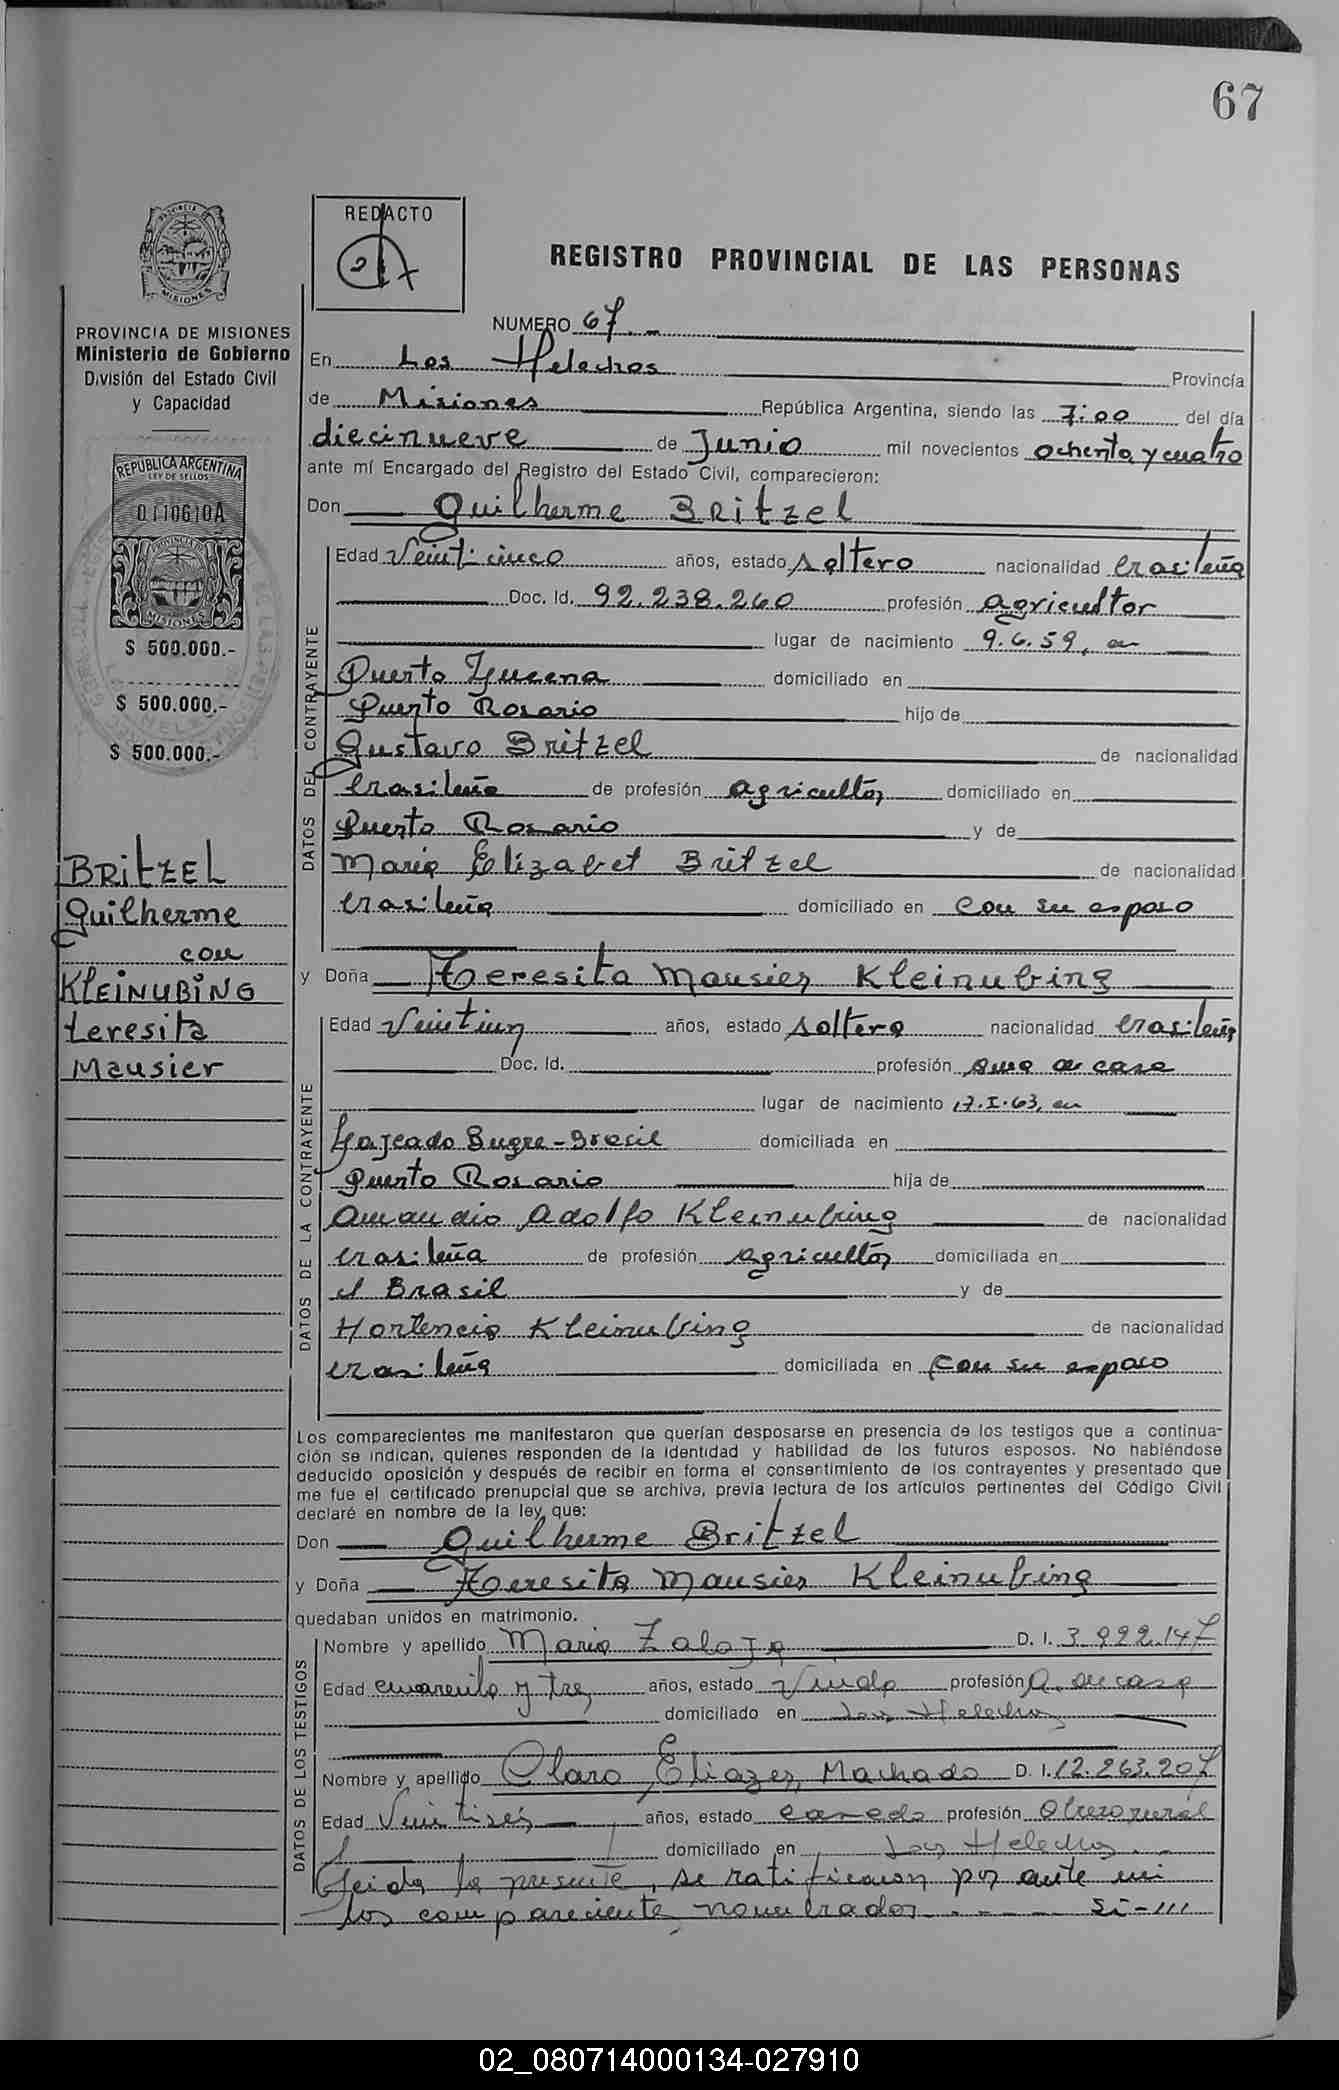 67
REDACTO
REGISTRO PROVINCIAL DE LAS PERSONAS
PROVINCIA DE MISIONES
Ministerio de Gobierno
División del Estado Civil
y Capacidad
REPUBLICA ARGENTINA
LEY DE SELLOS
0110610A
PROVINCIA DE
MISIONES
$ 500.000.-
$ 500.000.-
$ 500.000.-
BRitZEL
Guilherme
con
KLEINUBING
teresita
Mausier
NUMERO 67.-
En Los Helechos Provincia
de Misiones República Argentina, siendo las 7:00 del día
diecinueve de Junio mil novecientos ochenta y cuatro
ante mí Encargado del Registro del Estado Civil, comparecieron:
Don Guilherme Britzel
DATOS DEL CONTRAYENTE
Edad Veinticinco años, estado soltero nacionalidad brasileña
Doc. Id. 92.238.260 profesión agricultor
lugar de nacimiento 9.6.59, en
Puerto Lucena domiciliado en
Puerto Rosario hijo de
Gustavo Britzel de nacionalidad
brasileña de profesión agricultor domiciliado en
Puerto Rosario y de
Maria Elizabet Britzel de nacionalidad
brasileña domiciliado en con su esposo
y Doña Teresita Mausier Kleinubing
DATOS DE LA CONTRAYENTE
Edad Veintiun años, estado soltera nacionalidad brasileña
Doc. Id. profesión ama de casa
lugar de nacimiento 17.I.63, en
Lajeado Bugre-Brasil domiciliada en
Puerto Rosario hija de
Amandio Adolfo Kleinubing de nacionalidad
brasileña de profesión agricultor domiciliada en
el Brasil y de
Hortencia Kleinubing de nacionalidad
brasileña domiciliada en con su esposo
Los comparecientes me manifestaron que querían desposarse en presencia de los testigos que a continua-
ción se indican, quienes responden de la identidad y habilidad de los futuros esposos. No habiéndose
deducido oposición y después de recibir en forma el consentimiento de los contrayentes y presentado que
me fue el certificado prenupcial que se archiva, previa lectura de los artículos pertinentes del Código Civil
declaré en nombre de la ley, que:
Don Guilherme Britzel
y Doña Teresita Mausier Kleinubing
quedaban unidos en matrimonio.
DATOS DE LOS TESTIGOS
Nombre y apellido Maria D. I. 3.922.147
Edad cuarenta y tres años, estado Viuda profesión A. de casa
domiciliado en Los Helechos
Nombre y apellido Claro Eliazer Machado D. I. 12.263.207
Edad Veintiseis años, estado casado profesión Obrero rural
domiciliado en Los Helechos
Leida la presente, se ratificaron por ante mi
los compareciente nombrados.
02_080714000134-027910